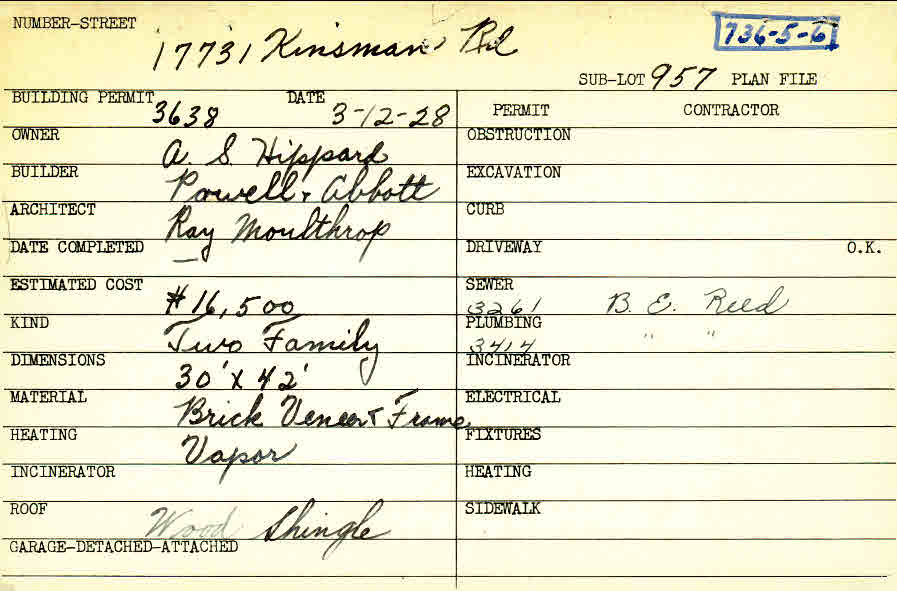 NUMBER-STREET
17731 Kinsman Rd
736-5-6
SUB-LOT 957 PLAN FILE
BUILDING PERMIT 3638 DATE 3-12-28
PERMIT CONTRACTOR
OWNER A. S. Hippard
OBSTRUCTION
BUILDER Powell & Abbott
EXCAVATION
ARCHITECT Ray Moulthrop
CURB
DATE COMPLETED —
DRIVEWAY O.K.
ESTIMATED COST $16,500
SEWER 3261 B. E. Reed
KIND Two Family
PLUMBING 3414 " "
DIMENSIONS 30' x 42'
INCINERATOR
MATERIAL Brick Veneer & Frame
ELECTRICAL
HEATING Vapor
FIXTURES
INCINERATOR
HEATING
ROOF Wood Shingle
SIDEWALK
GARAGE-DETACHED-ATTACHED